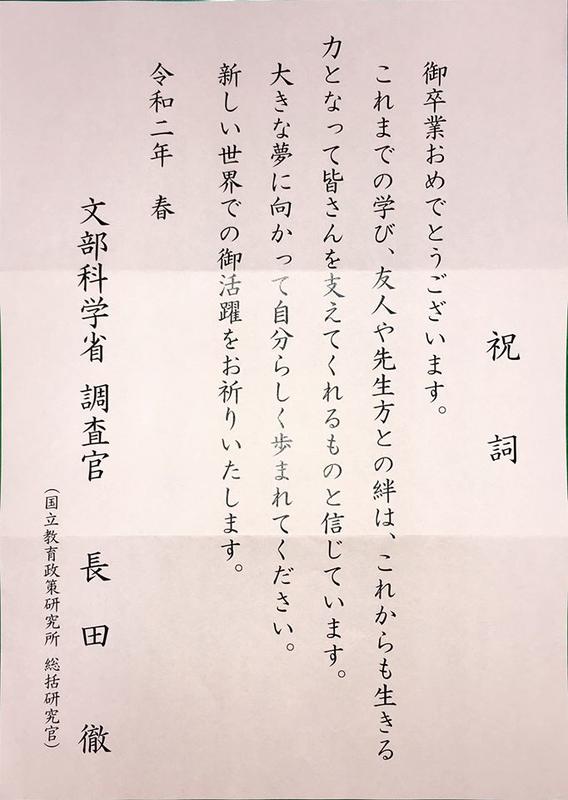 祝詞
御卒業おめでとうございます。
これまでの学び、友人や先生方との絆は、これからも生きる
力となって皆さんを支えてくれるものと信じています。
大きな夢に向かって自分らしく歩まれてください。
新しい世界での御活躍をお祈りいたします。
令和二年 春
文部科学省 調査官 長田 徹
(国立教育政策研究所 総括研究官)